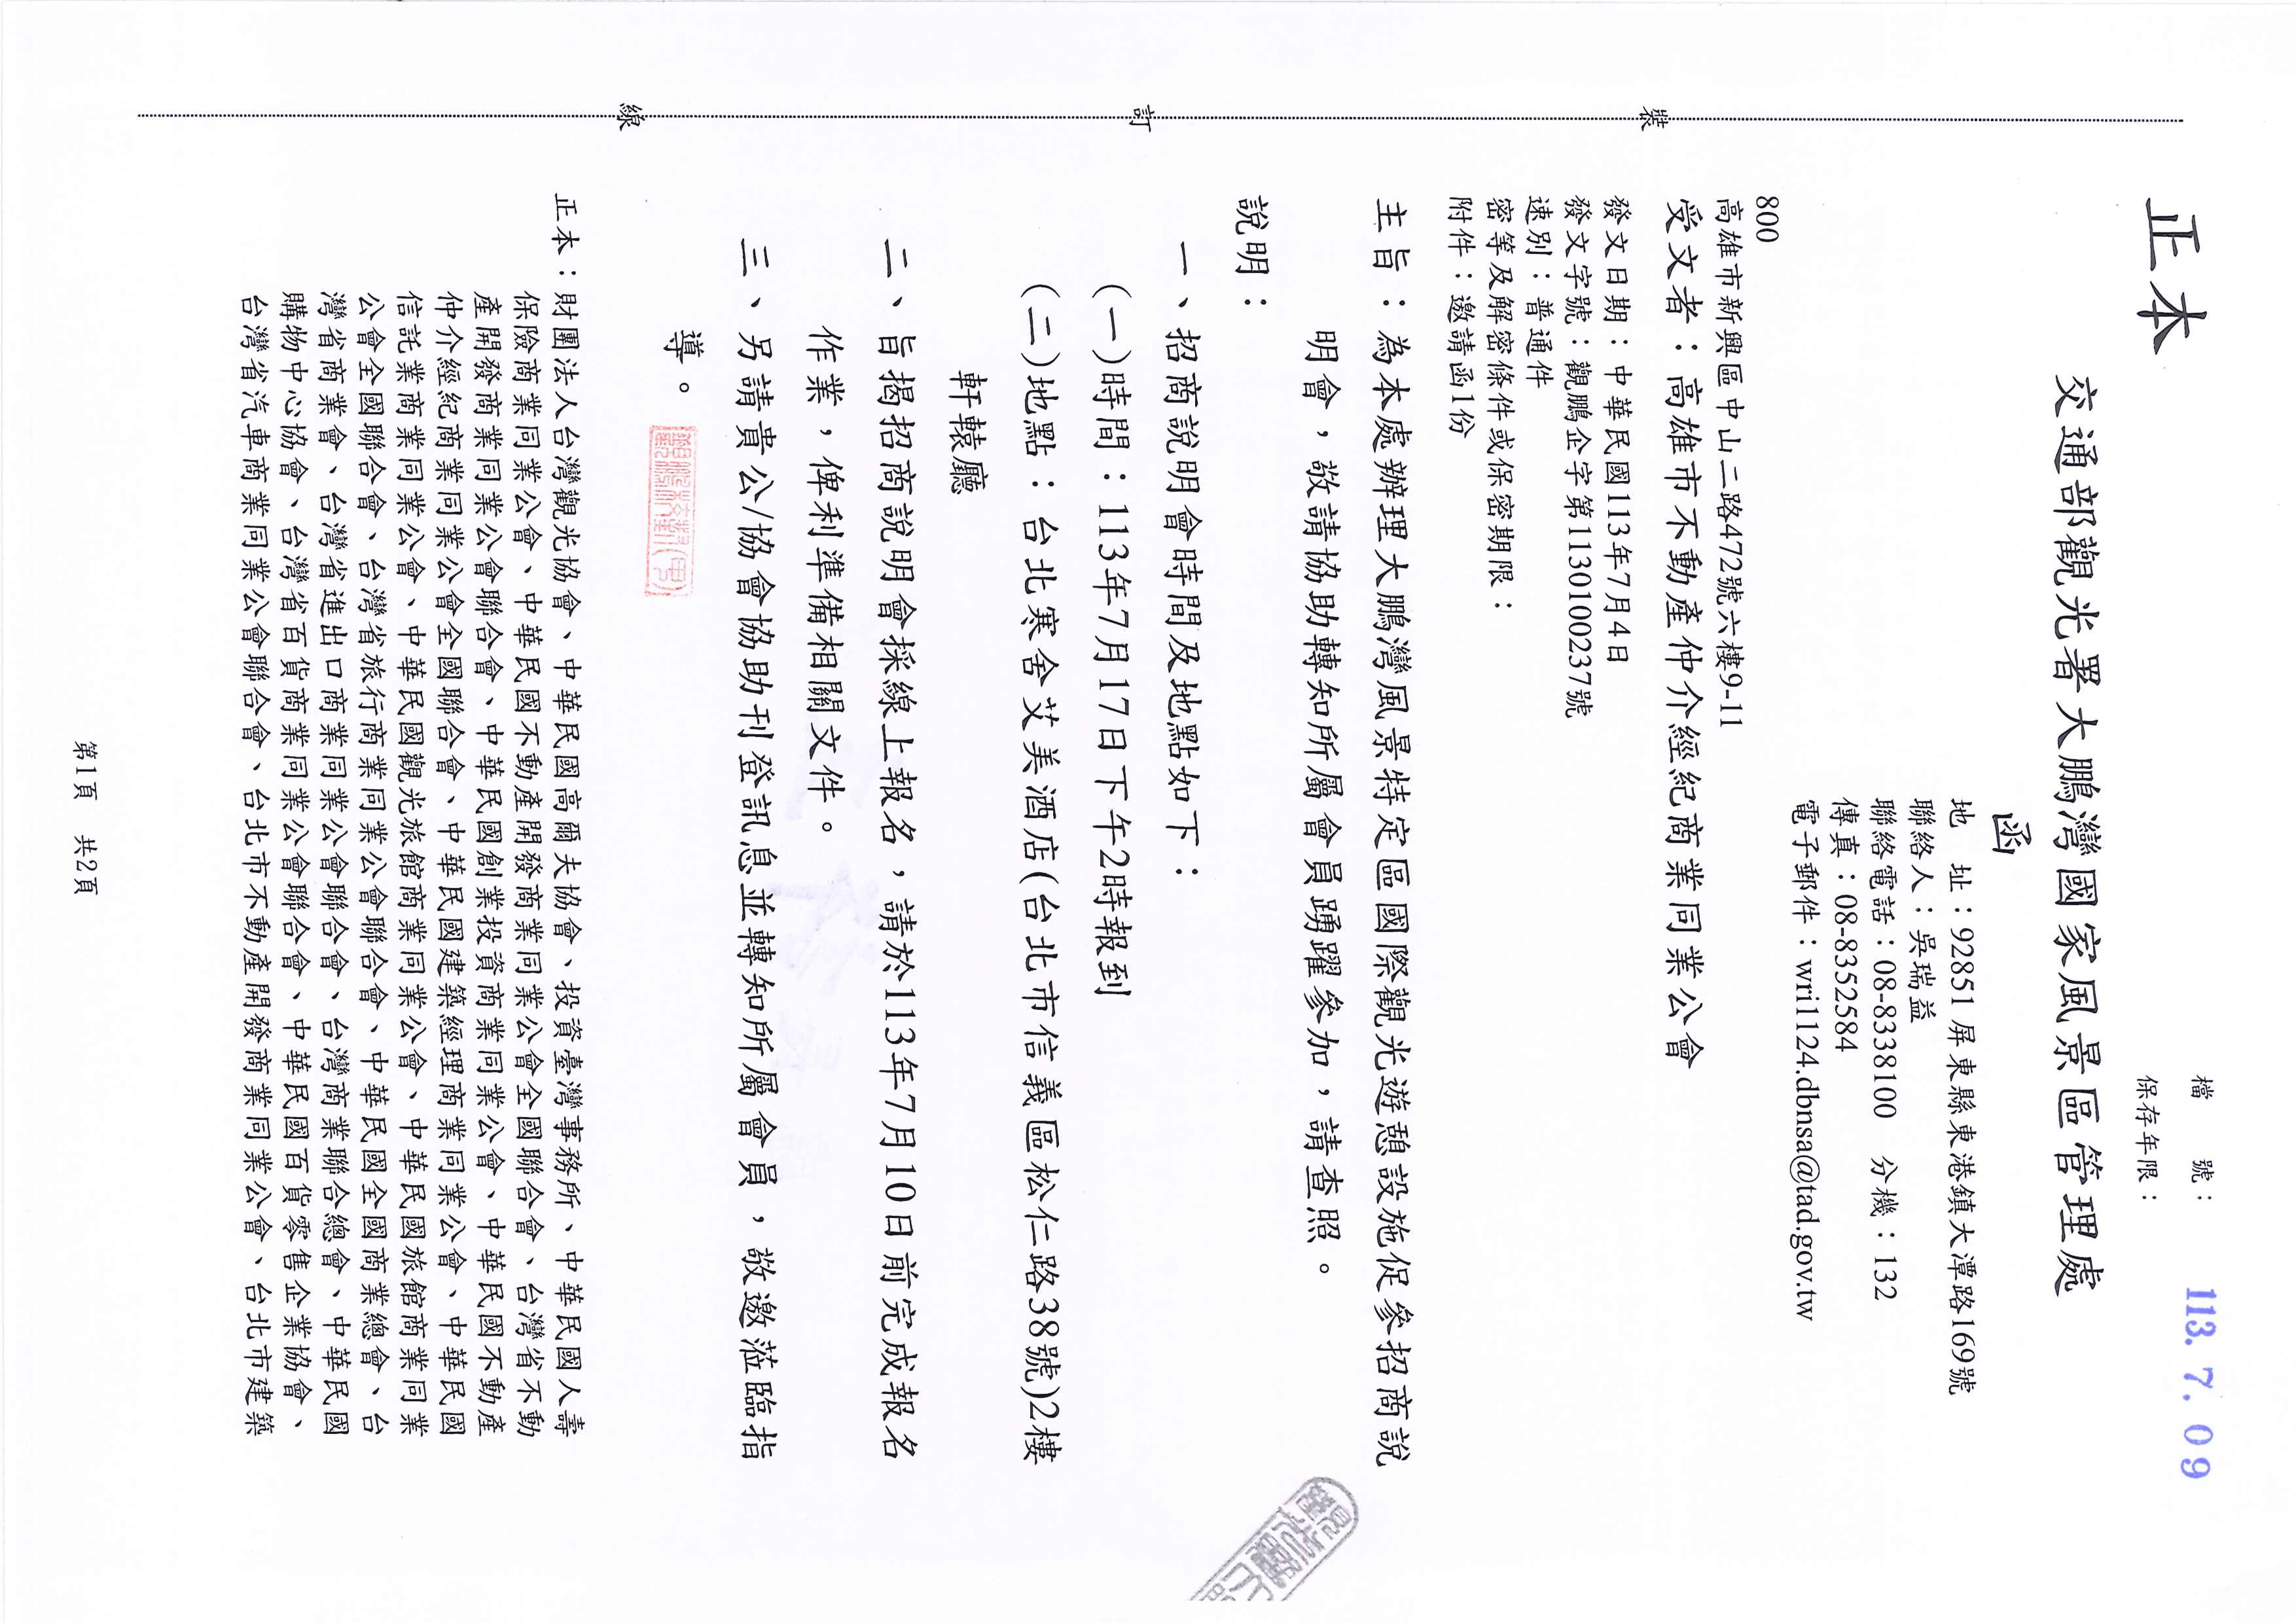 正本
檔　　號：
保存年限：
113. 7. 09
交通部觀光署大鵬灣國家風景區管理處
函
地　址：92851 屏東縣東港鎮大潭路169號
聯絡人：吳瑞益
聯絡電話：08-8338100　分機：132
傳真：08-8352584
電子郵件：wri1124.dbnsa@tad.gov.tw
800
高雄市新興區中山二路472號六樓9-11
受文者：高雄市不動產仲介經紀商業同業公會
發文日期：中華民國113年7月4日
發文字號：觀鵬企字第1130100237號
速別：普通件
密等及解密條件或保密期限：
附件：邀請函1份
主旨：為本處辦理大鵬灣風景特定區國際觀光遊憩設施促參招商說
明會，敬請協助轉知所屬會員踴躍參加，請查照。
說明：
一、招商說明會時間及地點如下：
(一)時間：113年7月17日下午2時報到
(二)地點：台北寒舍艾美酒店(台北市信義區松仁路38號)2樓
軒轅廳
二、旨揭招商說明會採線上報名，請於113年7月10日前完成報名
作業，俾利準備相關文件。
三、另請貴公/協會協助刊登訊息並轉知所屬會員，敬邀蒞臨指
導。
正本：財團法人台灣觀光協會、中華民國高爾夫協會、投資臺灣事務所、中華民國人壽
保險商業同業公會、中華民國不動產開發商業同業公會全國聯合會、台灣省不動
產開發商業同業公會聯合會、中華民國創業投資商業同業公會、中華民國不動產
仲介經紀商業同業公會全國聯合會、中華民國建築經理商業同業公會、中華民國
信託業商業同業公會、中華民國觀光旅館商業同業公會、中華民國旅館商業同業
公會全國聯合會、台灣省旅行商業同業公會聯合會、中華民國全國商業總會、台
灣省商業會、台灣省進出口商業同業公會聯合會、台灣商業聯合總會、中華民國
購物中心協會、台灣省百貨商業同業公會聯合會、中華民國百貨零售企業協會、
台灣省汽車商業同業公會聯合會、台北市不動產開發商業同業公會、台北市建築
第1頁　共2頁
裝
訂
線